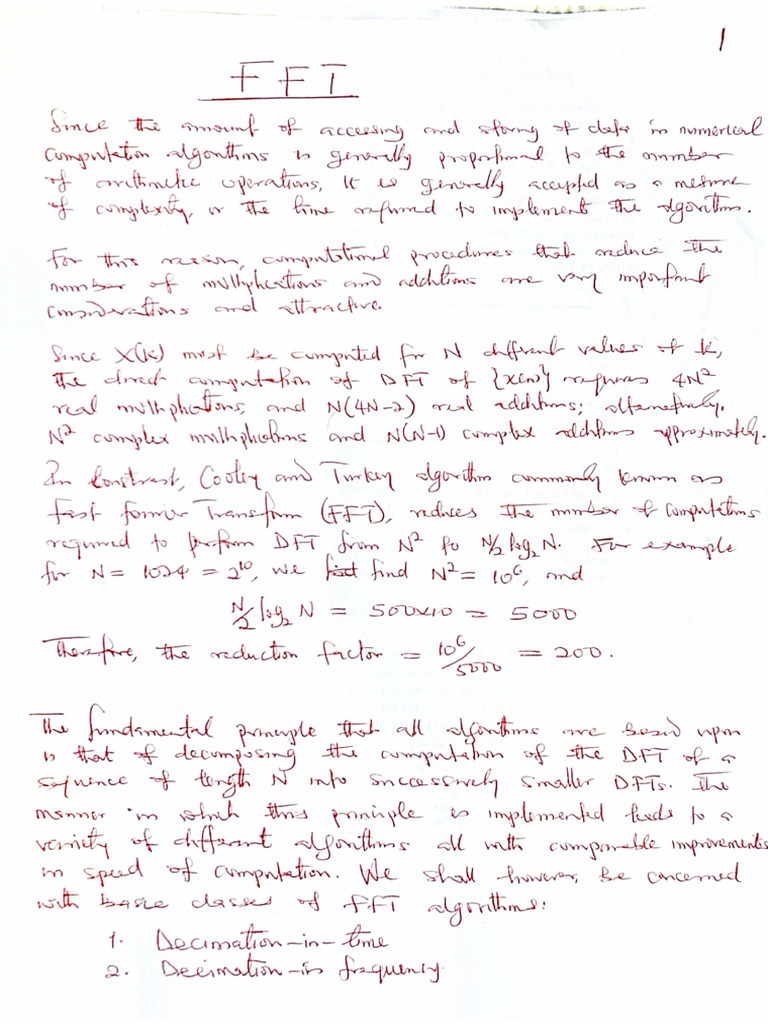 1
FFT
Since the amount of accessing and storing of data in numerical
computation algorithms is generally proportional to the number
of arithmetic operations, it is generally accepted as a measure
of complexity, or the time required to implement the algorithm.
For this reason, computational procedures that reduce the
number of multiplications and additions are very important
considerations and attractive.
Since X(k) must be computed for N different values of k,
the direct computation of DFT of {x(n)} requires 4N²
real multiplications, and N(4N-2) real additions; alternatively,
N² complex multiplications and N(N-1) complex additions approximately.
In Constrast, Cooley and Turkey algorithm commonly known as
fast fourier Transform (FFT), reduces the number of computations
required to perform DFT from N² to N/2 log₂ N. For example
for N = 1024 = 2¹⁰, we find N² = 10⁶, and
N/2 log₂ N = 500x10 = 5000
Therefore, the reduction factor = 10⁶/5000 = 200.
The fundamental principle that all algorithms are based upon
is that of decomposing the computation of the DFT of a
sequence of length N into successively smaller DFTs. The
manner in which this principle is implemented leads to a
variety of different algorithms all with comparable improvements
in speed of computation. We shall however, be concerned
with basic classes of FFT algorithms:
1. Decimation-in-time
2. Decimation-in frequency